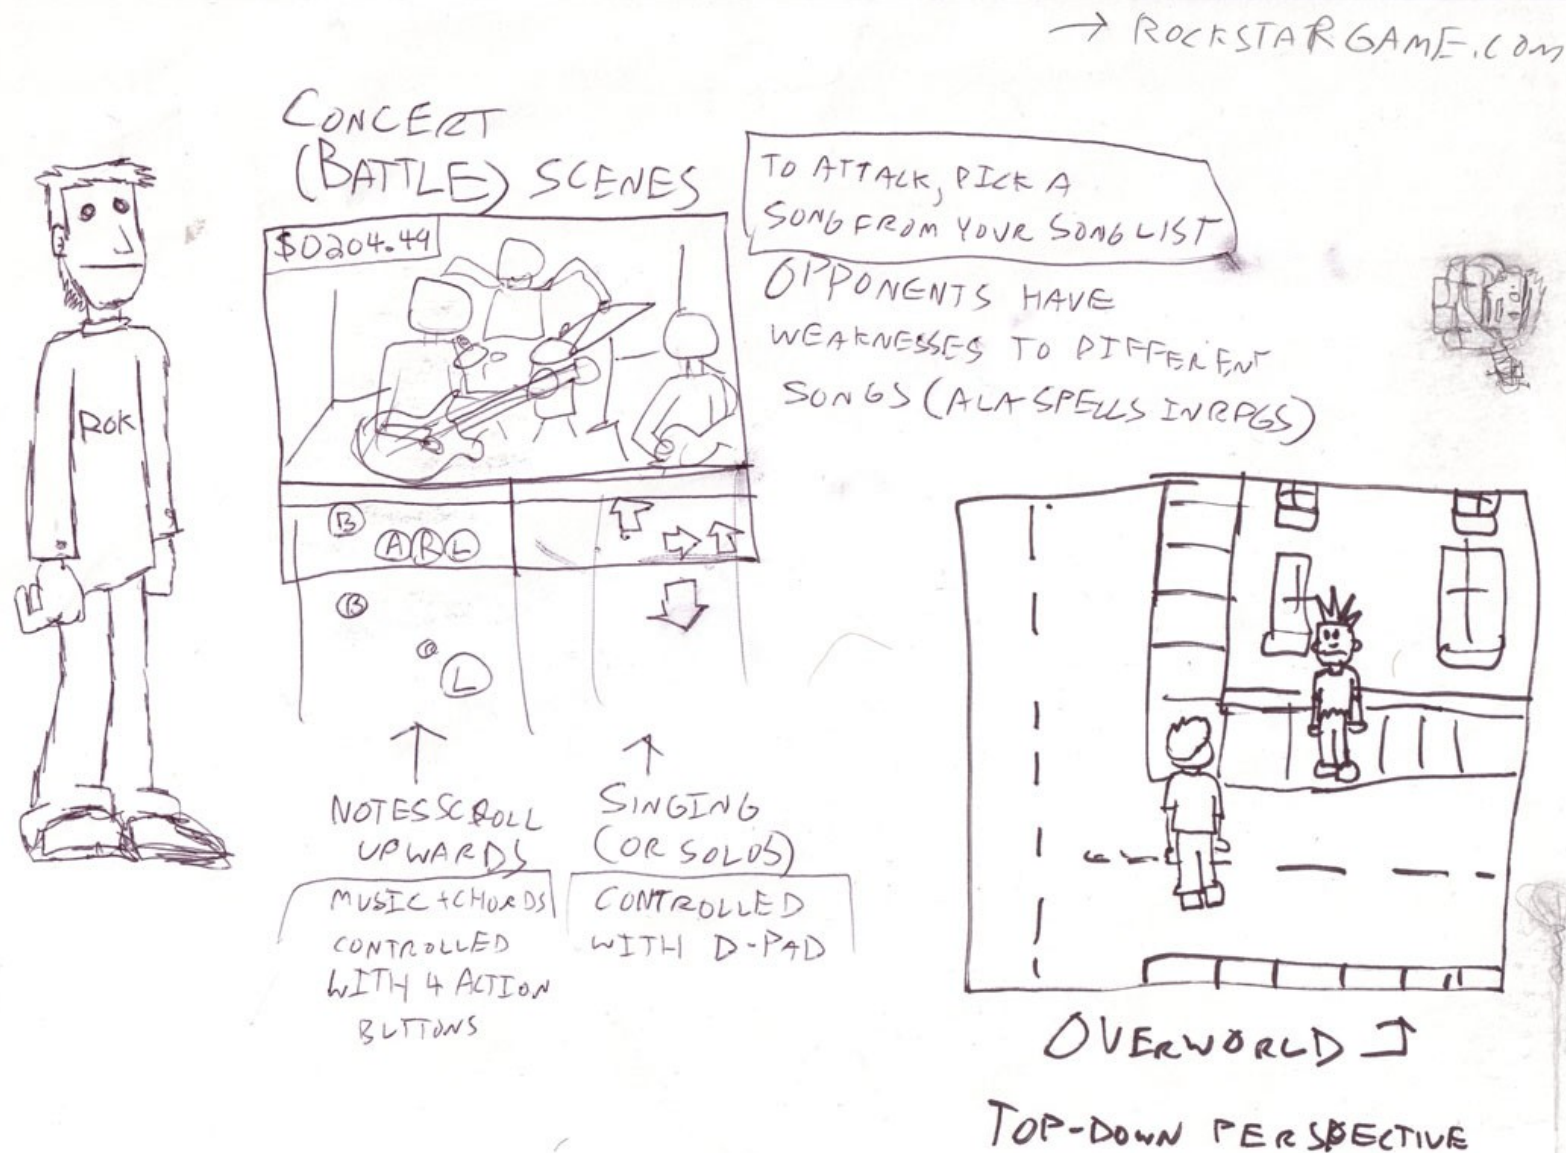 → ROCKSTARGAME.COM
CONCERT
(BATTLE) SCENES
TO ATTACK, PICK A
SONG FROM YOUR SONGLIST
OPPONENTS HAVE
WEAKNESSES TO DIFFERENT
SONGS (ALA SPELLS IN RPGS)
$0204.49
ROK
B
A R L
B
L
NOTES SCROLL
UPWARDS
MUSIC + CHORDS
CONTROLLED
WITH 4 ACTION
BUTTONS
SINGING
(OR SOLOS)
CONTROLLED
WITH D-PAD
OVERWORLD
TOP-DOWN PERSPECTIVE